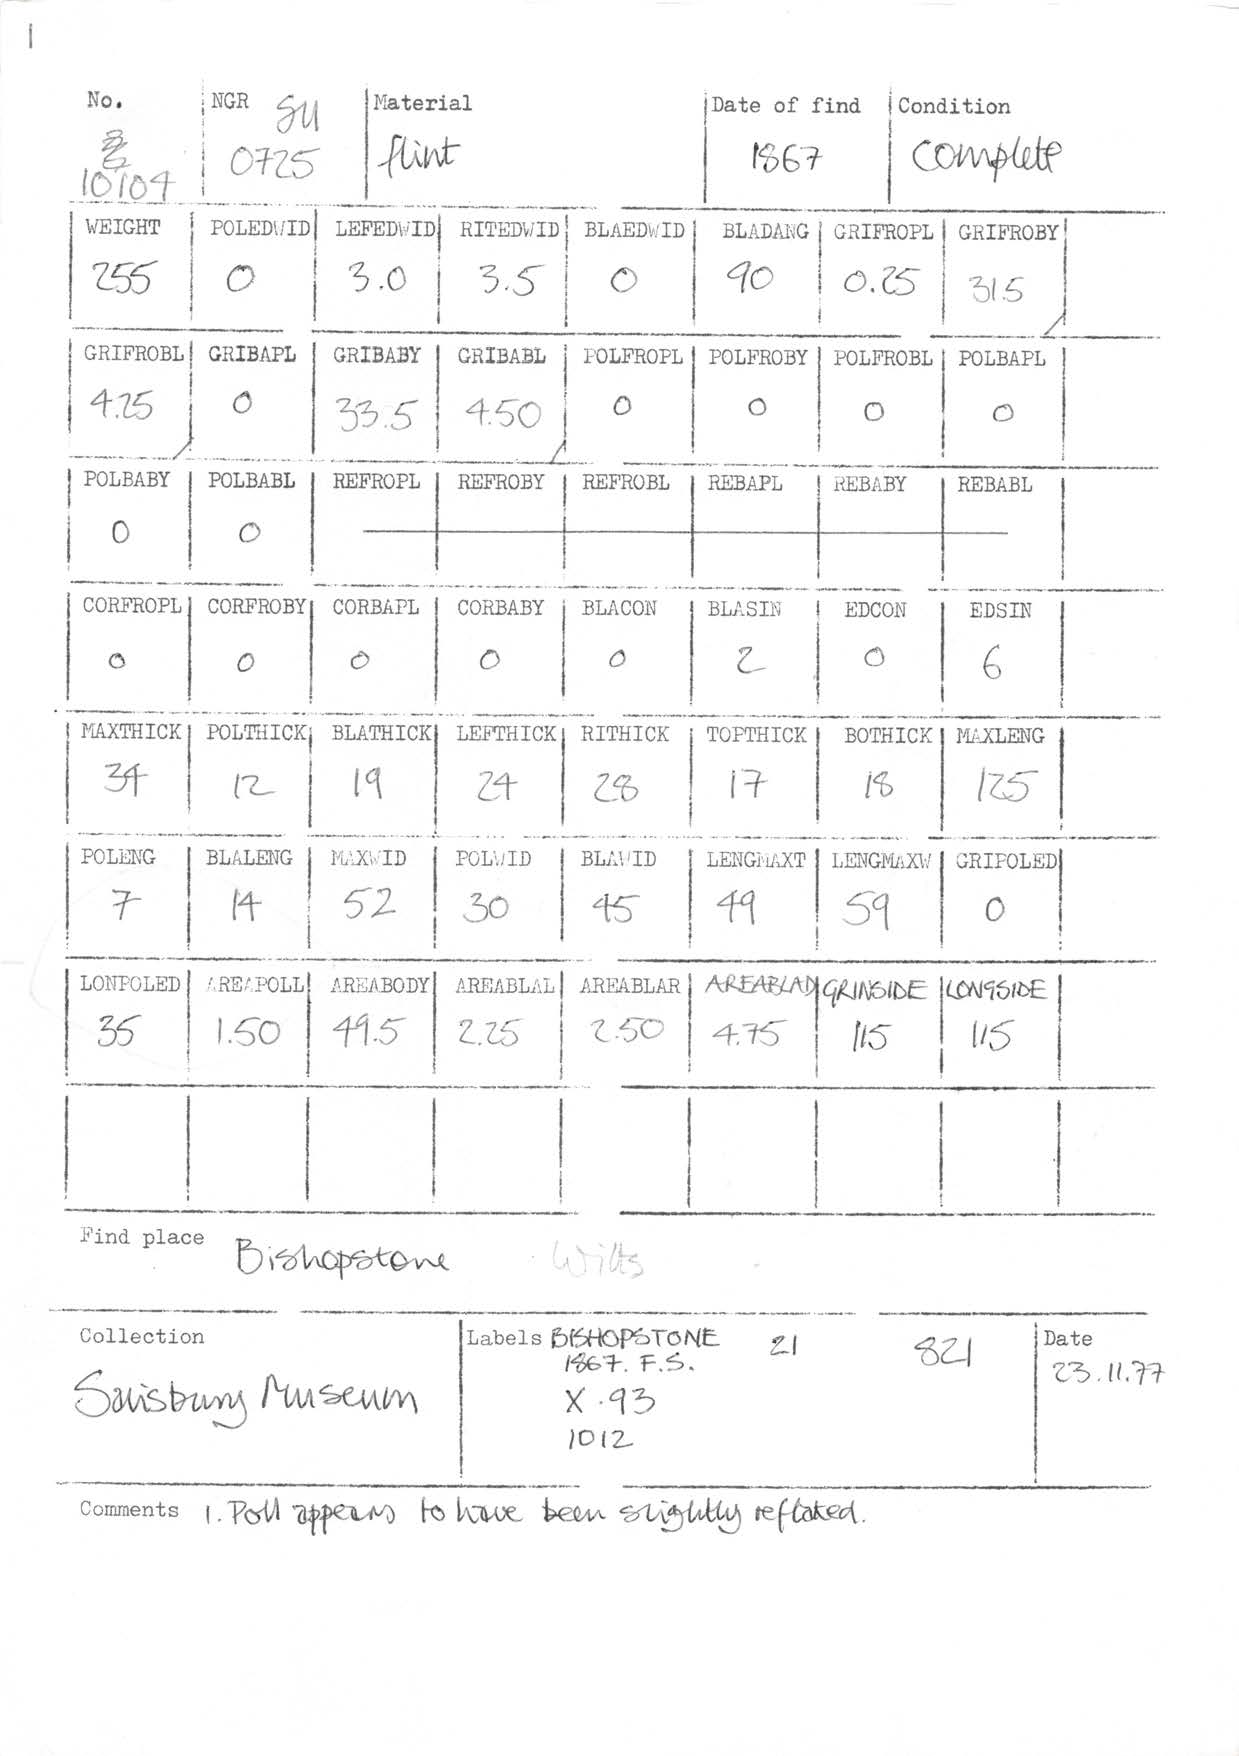 1
No. NGR SU Material Date of find Condition
10104 0725 flint 1867 complete
WEIGHT POLEDWID LEFEDWID RITEDWID BLAEDWID BLADANG GRIFROPL GRIFROBY
255 0 3.0 3.5 0 90 0.25 31.5
GRIFROBL GRIBAPL GRIBABY GRIBABL POLFROPL POLFROBY POLFROBL POLBAPL
4.25 0 33.5 4.50 0 0 0 0
POLBABY POLBABL REFROPL REFROBY REFROBL REBAPL REBABY REBABL
0 0
CORFROPL CORFROBY CORBAPL CORBABY BLACON BLASIN EDCON EDSIN
0 0 0 0 0 2 0 6
MAXTHICK POLTHICK BLATHICK LEFTHICK RITHICK TOPTHICK BOTHICK MAXLENG
34 12 19 24 28 17 18 125
POLENG BLALENG MAXWID POLWID BLAWID LENGMAXT LENGMAXW GRIPOLED
7 14 52 30 45 49 59 0
LONPOLED AREAPOLL AREABODY AREABLAL AREABLAR AREABLAD GRINSIDE LONGSIDE
35 1.50 49.5 2.25 2.50 4.75 115 115
Find place Bishopstone Wilts
Collection Labels BISHOPSTONE 21 821 Date
1867. F.S. 23.11.77
Salisbury Museum X.93
1012
Comments 1. Poll appears to have been slightly reflaked.